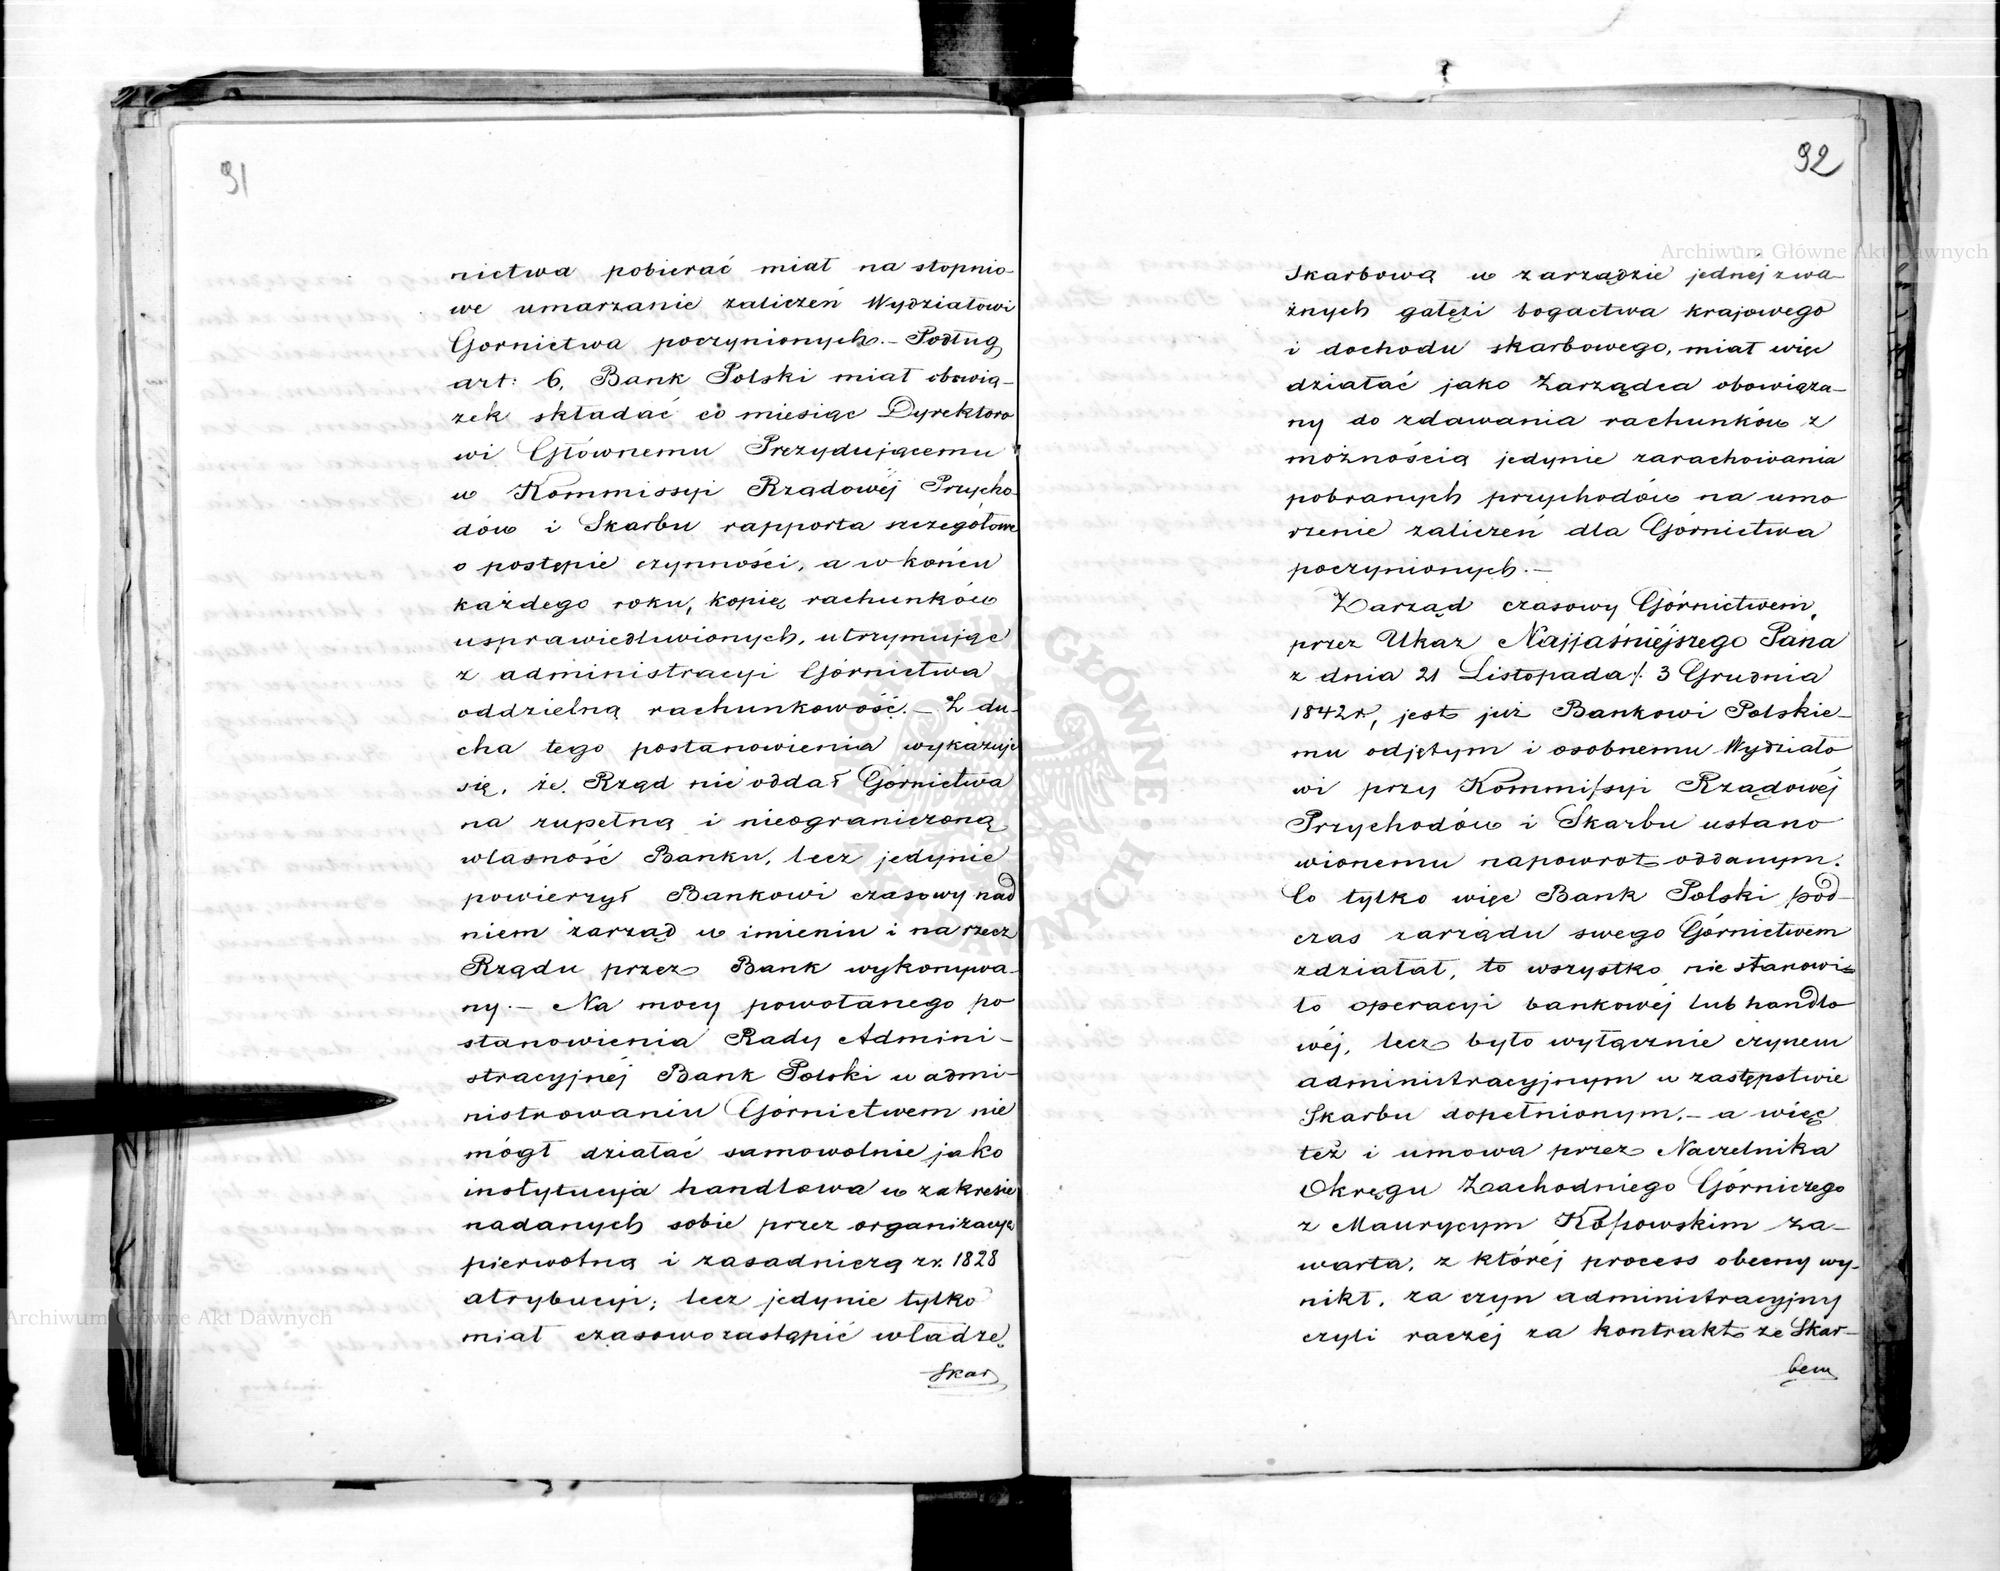 91
nictwa pobierać miał na stopnio-
we umarzanie zaliczeń Wydziałowi
Gornictwa poczynionych.- Podług
art: 6, Bank Polski miał obowią-
zek składać co miesiąc Dyrektoro
wi Głównemu Prezydującemu
w Kommissyi Rządowéj Przycho-
dów i Skarbu rapporta szczegółowe
o postępie czynności, a w końcu
każdego roku, kopię rachunków
usprawiedliwionych, utrzymując
z administracyi Górnictwa
oddzielną rachunkowość.- Z du-
cha tego postanowienia wykazuje
się, że Rząd nie oddał Górnictwa
na zupełną i nieograniczoną
własność Banku, lecz jedynie
powierzył Bankowi czasowy nad
niem zarząd w imieniu i na rzecz
Rządu przez Bank wykonywa-
ny.- Na mocy powołanego po
stanowienia Rady Admini-
stracyjnéj Bank Polski w admi-
nistrowaniu Górnictwem nie
mógł działać samowolnie jako
instytucyja handlowa w zakresie
nadanych sobie przez organizacyę
pierwotną i zasadniczą z r. 1828
atrybucyi; lecz jedynie tylko
miał czasowo zastąpić władzę
Skar
92
Skarbową w zarządzie jednéj z wa-
żnych gałęzi bogactwa krajowego
i dochodu skarbowego, miał więc
działać jako Zarządca obowiąza-
ny do zdawania rachunków z
możnością jedynie zarachowania
pobranych przychodów na umo
rzenie zaliczeń dla Górnictwa
poczynionych.-
Zarząd czasowy Górnictwem,
przez Ukaz Najjaśniejszego Pana
z dnia 21 Listopada /: 3 Grudnia
1842 r, jest już Bankowi Polskie-
mu odjętym i osobnemu Wydziało
wi przy Kommissyi Rządowéj
Przychodów i Skarbu ustano
wionemu napowrot oddanym.
Co tylko więc Bank Polski pod-
czas zarządu swego Górnictwem
zdziałał, to wszystko nie stanowi-
ło operacyi bankowéj lub handlo
wéj, lecz było wyłącznie czynem
administracyjnym w zastępstwie
Skarbu dopełnionym.- a więc
też i umowa przez Naczelnika
Okręgu Zachodniego Górniczego
z Maurycym Kossowskim za-
warta, z któréj process obecny wy-
nikł, za czyn administracyjny
czyli raczéj za kontrakt ze Skar-
bem
Archiwum Główne Akt Dawnych
Archiwum Główne Akt Dawnych